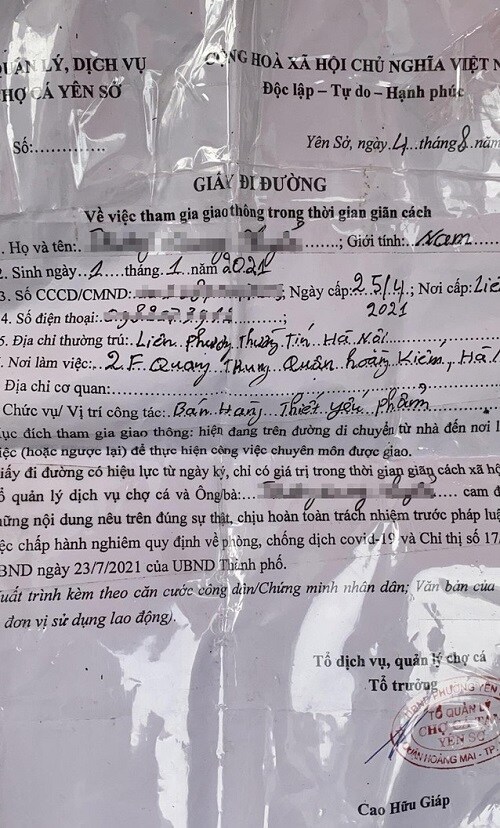 QUẢN LÝ, DỊCH VỤ
CHỢ CÁ YÊN SỞ
CỘNG HOÀ XÃ HỘI CHỦ NGHĨA VIỆT N
Độc lập – Tự do – Hạnh phúc
Số:...............
Yên Sở, ngày 4 tháng 8 năm
GIẤY ĐI ĐƯỜNG
Về việc tham gia giao thông trong thời gian giãn cách
1. Họ và tên: ; Giới tính: Nam
2. Sinh ngày 1 tháng 1 năm 2021
3. Số CCCD/CMND: ; Ngày cấp: 25/4 2021; Nơi cấp:
4. Số điện thoại:
5. Địa chỉ thường trú: Liên Phương Thường Tín Hà Nội
. Nơi làm việc: 2.F. Quang Trung Quận hoàng Kiếm, Hà
Địa chỉ cơ quan:
Chức vụ/ Vị trí công tác: Bán Hàng Thiết yếu phẩm
ục đích tham gia giao thông: hiện đang trên đường di chuyển từ nhà đến nơi l
iệc (hoặc ngược lại) để thực hiện công việc chuyên môn được giao.
iấy đi đường có hiệu lực từ ngày ký, chỉ có giá trị trong thời gian giãn cách xã hộ
ổ quản lý dịch vụ chợ cá và Ông/bà: cam đ
hững nội dung nêu trên đúng sự thật, chịu hoàn toàn trách nhiệm trước pháp luật
ệc chấp hành nghiêm quy định về phòng, chống dịch covid-19 và Chỉ thị số 17/
BND ngày 23/7/2021 của UBND Thành phố.
uất trình kèm theo căn cước công dân/Chứng minh nhân dân; Văn bản của
đơn vị sử dụng lao động).
Tổ dịch vụ, quản lý chợ cá
Tổ trưởng
PHƯỜNG YÊN
TỔ QUẢN LÝ
CHỢ CÁ
YÊN SỞ
QUẬN HOÀNG MAI - TP.
Cao Hữu Giáp